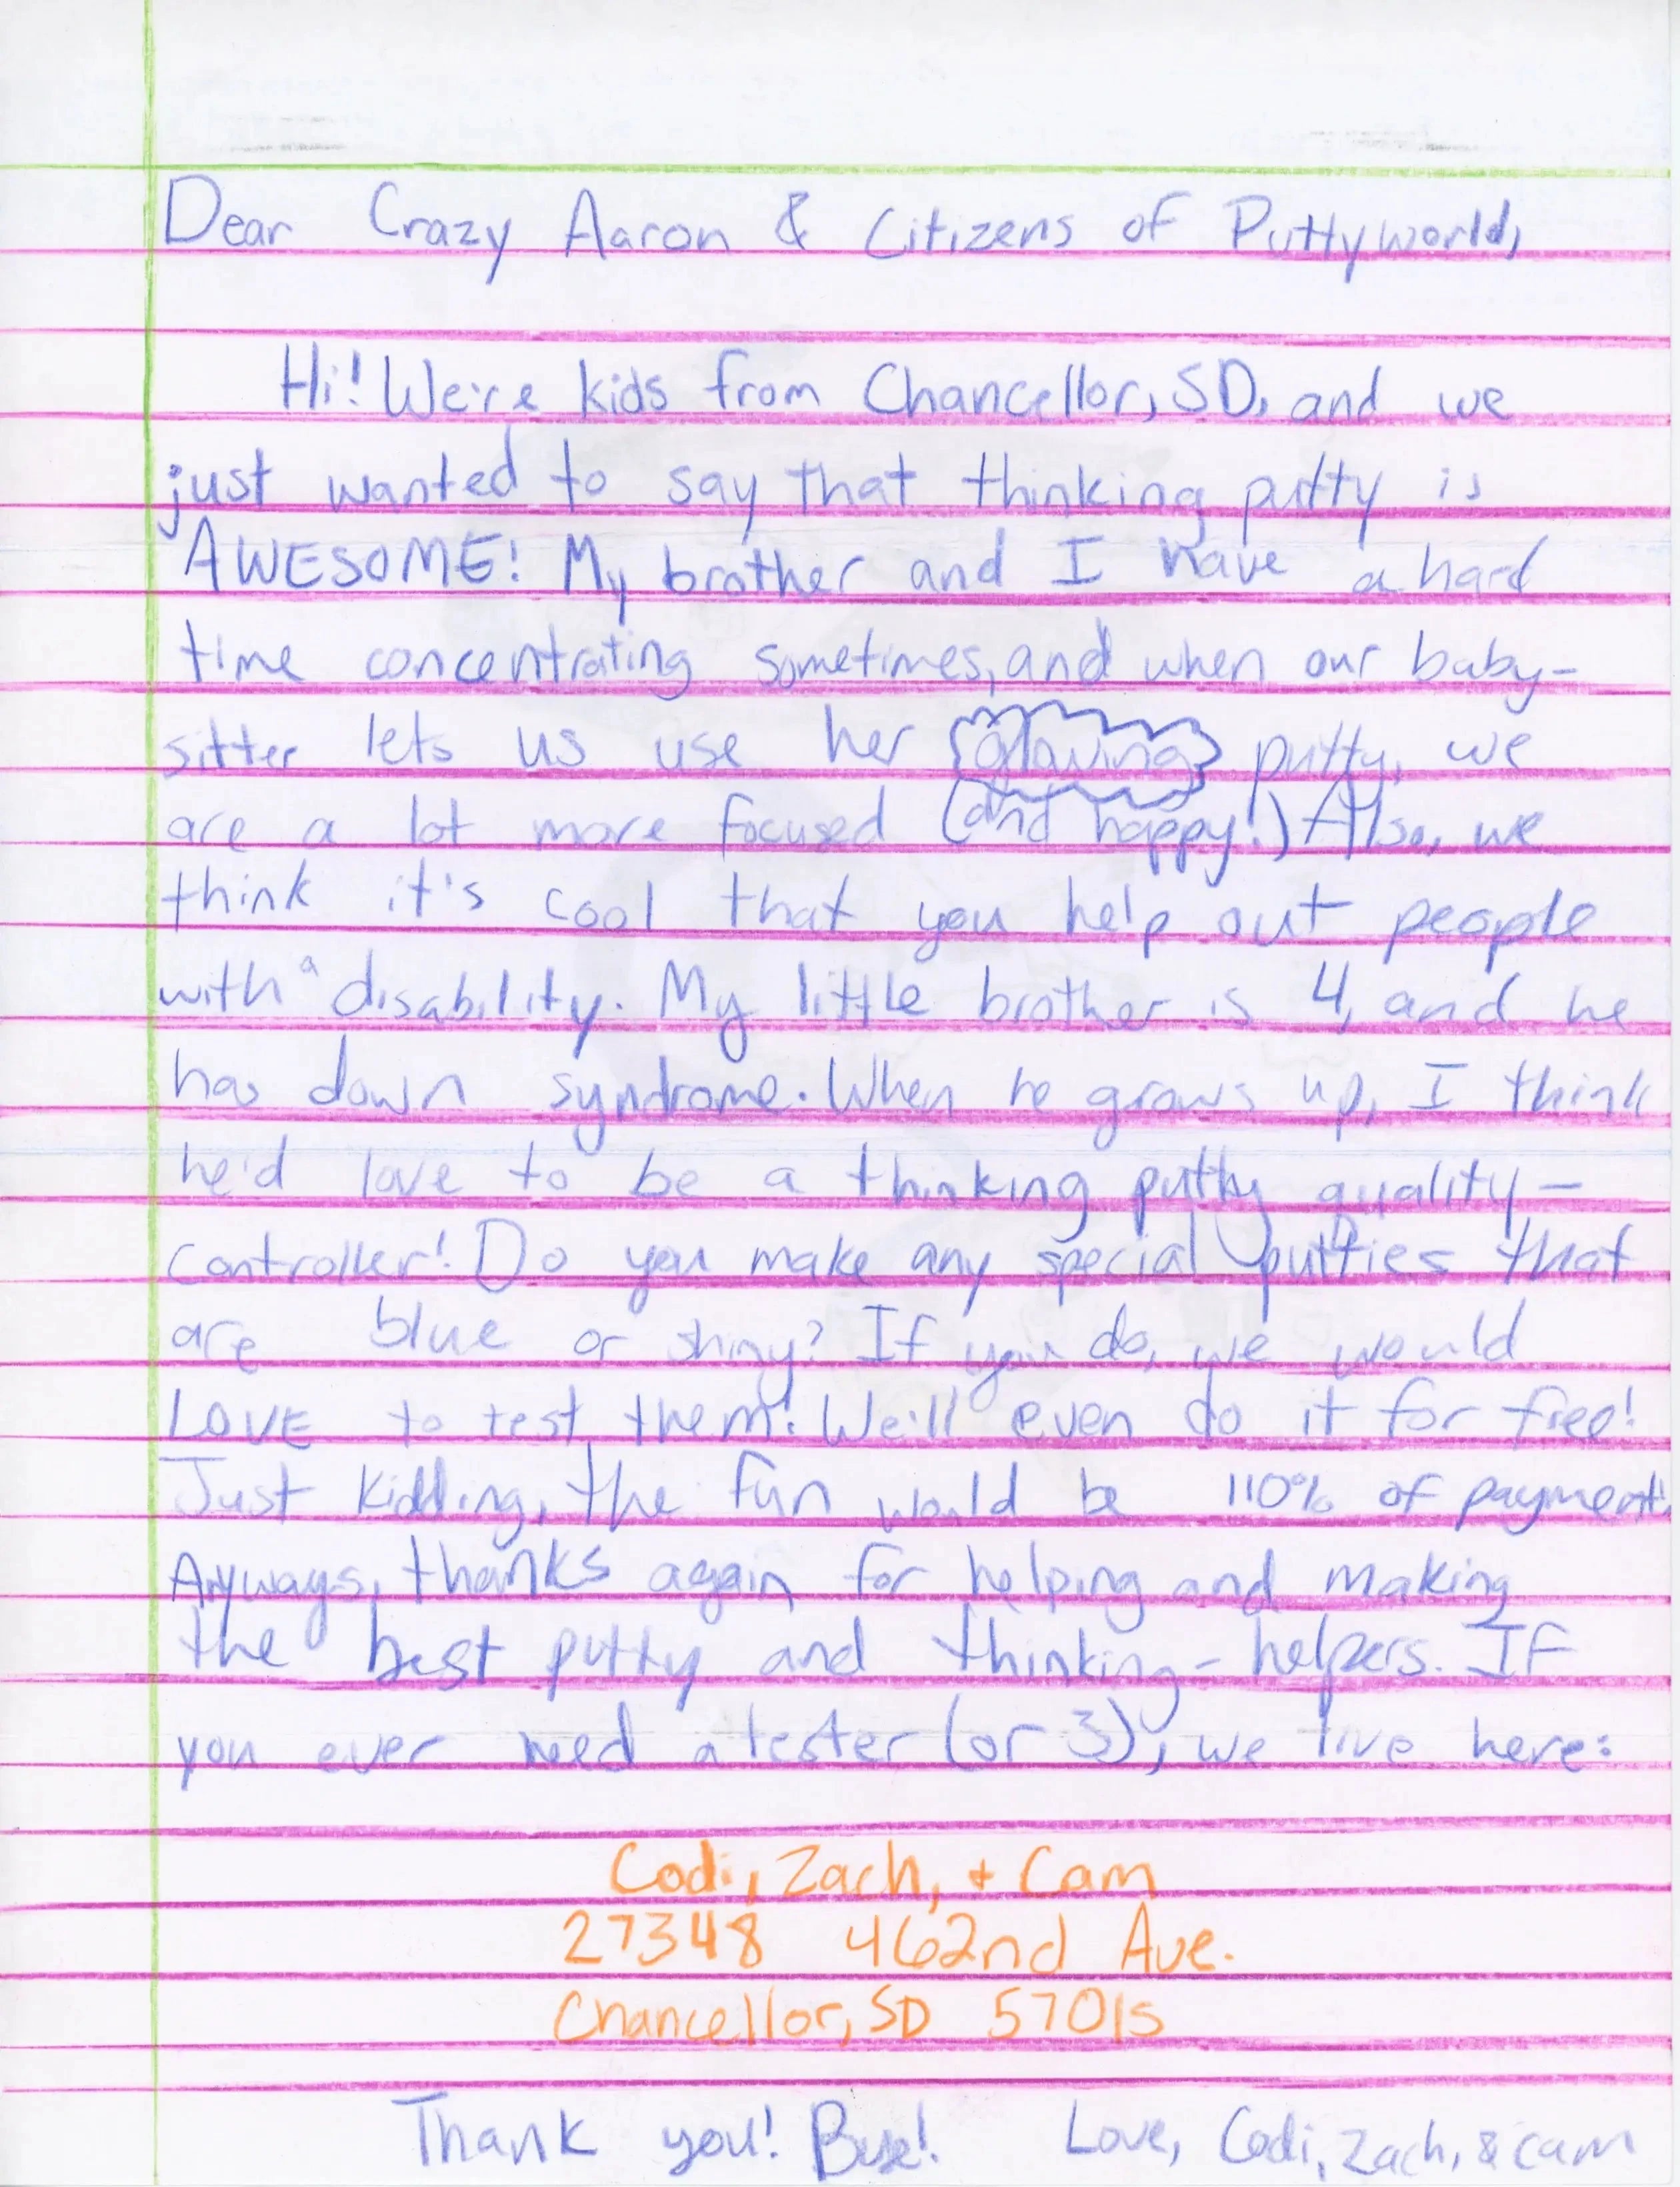 Dear Crazy Aaron & Citizens of Puttyworld,
Hi! We're kids from Chancellor, SD, and we
just wanted to say that thinking putty is
AWESOME! My brother and I have a hard
time concentrating sometimes, and when our baby-
sitter lets us use her glowing putty, we
are a lot more focused (and happy!) Also, we
think it's cool that you help out people
with a disability. My little brother is 4, and he
has down syndrome. When he grows up, I think
he'd love to be a thinking putty quality-
controller! Do you make any special putties that
are blue or shiny? If you do, we would
LOVE to test them! We'll even do it for free!
Just kidding, the fun would be 110% of payment!
Anyways, thanks again for helping and making
the best putty and thinking-helpers. If
you ever need a tester (or 3), we live here:
Codi, Zach, + Cam
27348 462nd Ave.
Chancellor, SD 57015
Thank you! Bye! Love, Codi, Zach, & Cam